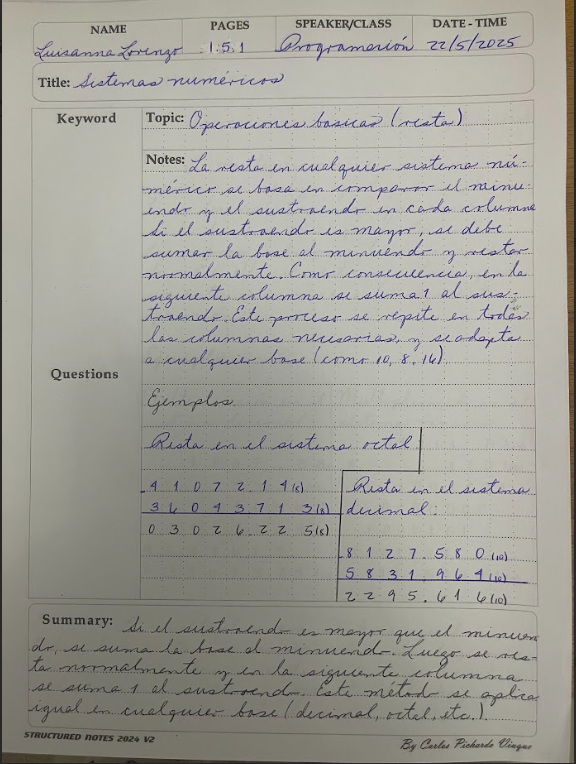 NAME PAGES SPEAKER/CLASS DATE - TIME
Luisanna Lorenzo 1.5.1 Programación 22/5/2025
Title: Sistemas numéricos
Keyword
Topic: Operaciones basicas (resta)
Notes: La resta en cualquier sistema nú-
mérico se basa en comparar el minu-
endo y el sustraendo en cada columna
Si el sustraendo es mayor, se debe
sumar la base al minuendo y restar
normalmente. Como consecuencia, en la
siguiente columna se suma 1 al sus-
traendo. Este proceso se repite en todas
las columnas necesarias, y se adapta
a cualquier base (como 10, 8, 16)
Questions
Ejemplos
Resta en el sistema octal
4 1 0 7 2 . 1 4(8)
3 6 0 4 3 7 1 3(8)
0 3 0 2 6 . 2 2 5(8)
Resta en el sistema
decimal:
8 1 2 7 . 5 8 0 (10)
5 8 3 1 . 9 6 4 (10)
2 2 9 5 . 6 1 6 (10)
Summary: Si el sustraendo es mayor que el minuen
do, se suma la base al minuendo. Luego se res-
ta normalmente y en la siguiente columna
se suma 1 al sustraendo. Este método se aplica
igual en cualquier base (decimal, octal, etc.).
STRUCTURED NOTES 2024 V2
By Carlos Pichardo Viuque